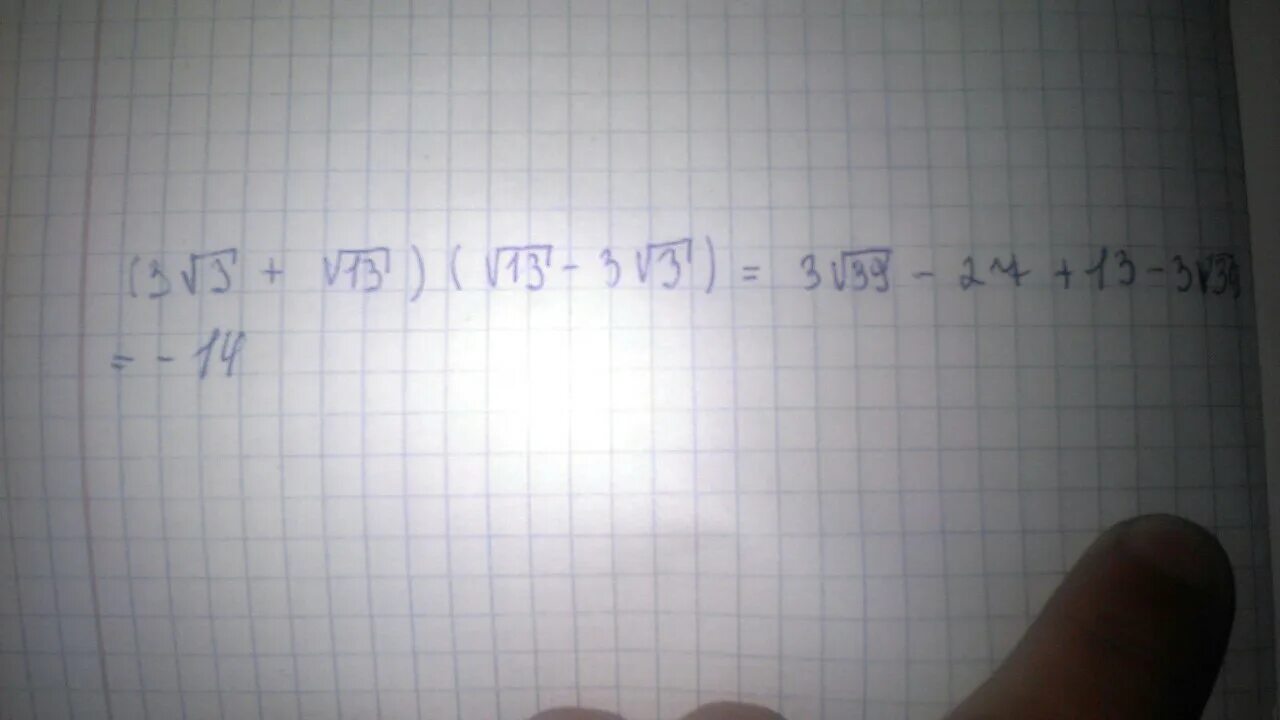 (3√3 + √13)(√13 - 3√3) = 3√39 - 27 + 13 - 3√39
= - 14